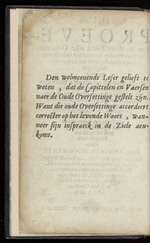 Den welmeenende Leser gelieft te
weten, dat de Capittelen en Vaersen
naer de Oude Oversettinge gestelt zijn.
Want die oude Oversettinge accordeert
correcter op het levende Woort, wan-
neer sijn inspraeck in de Ziele aen-
komt.